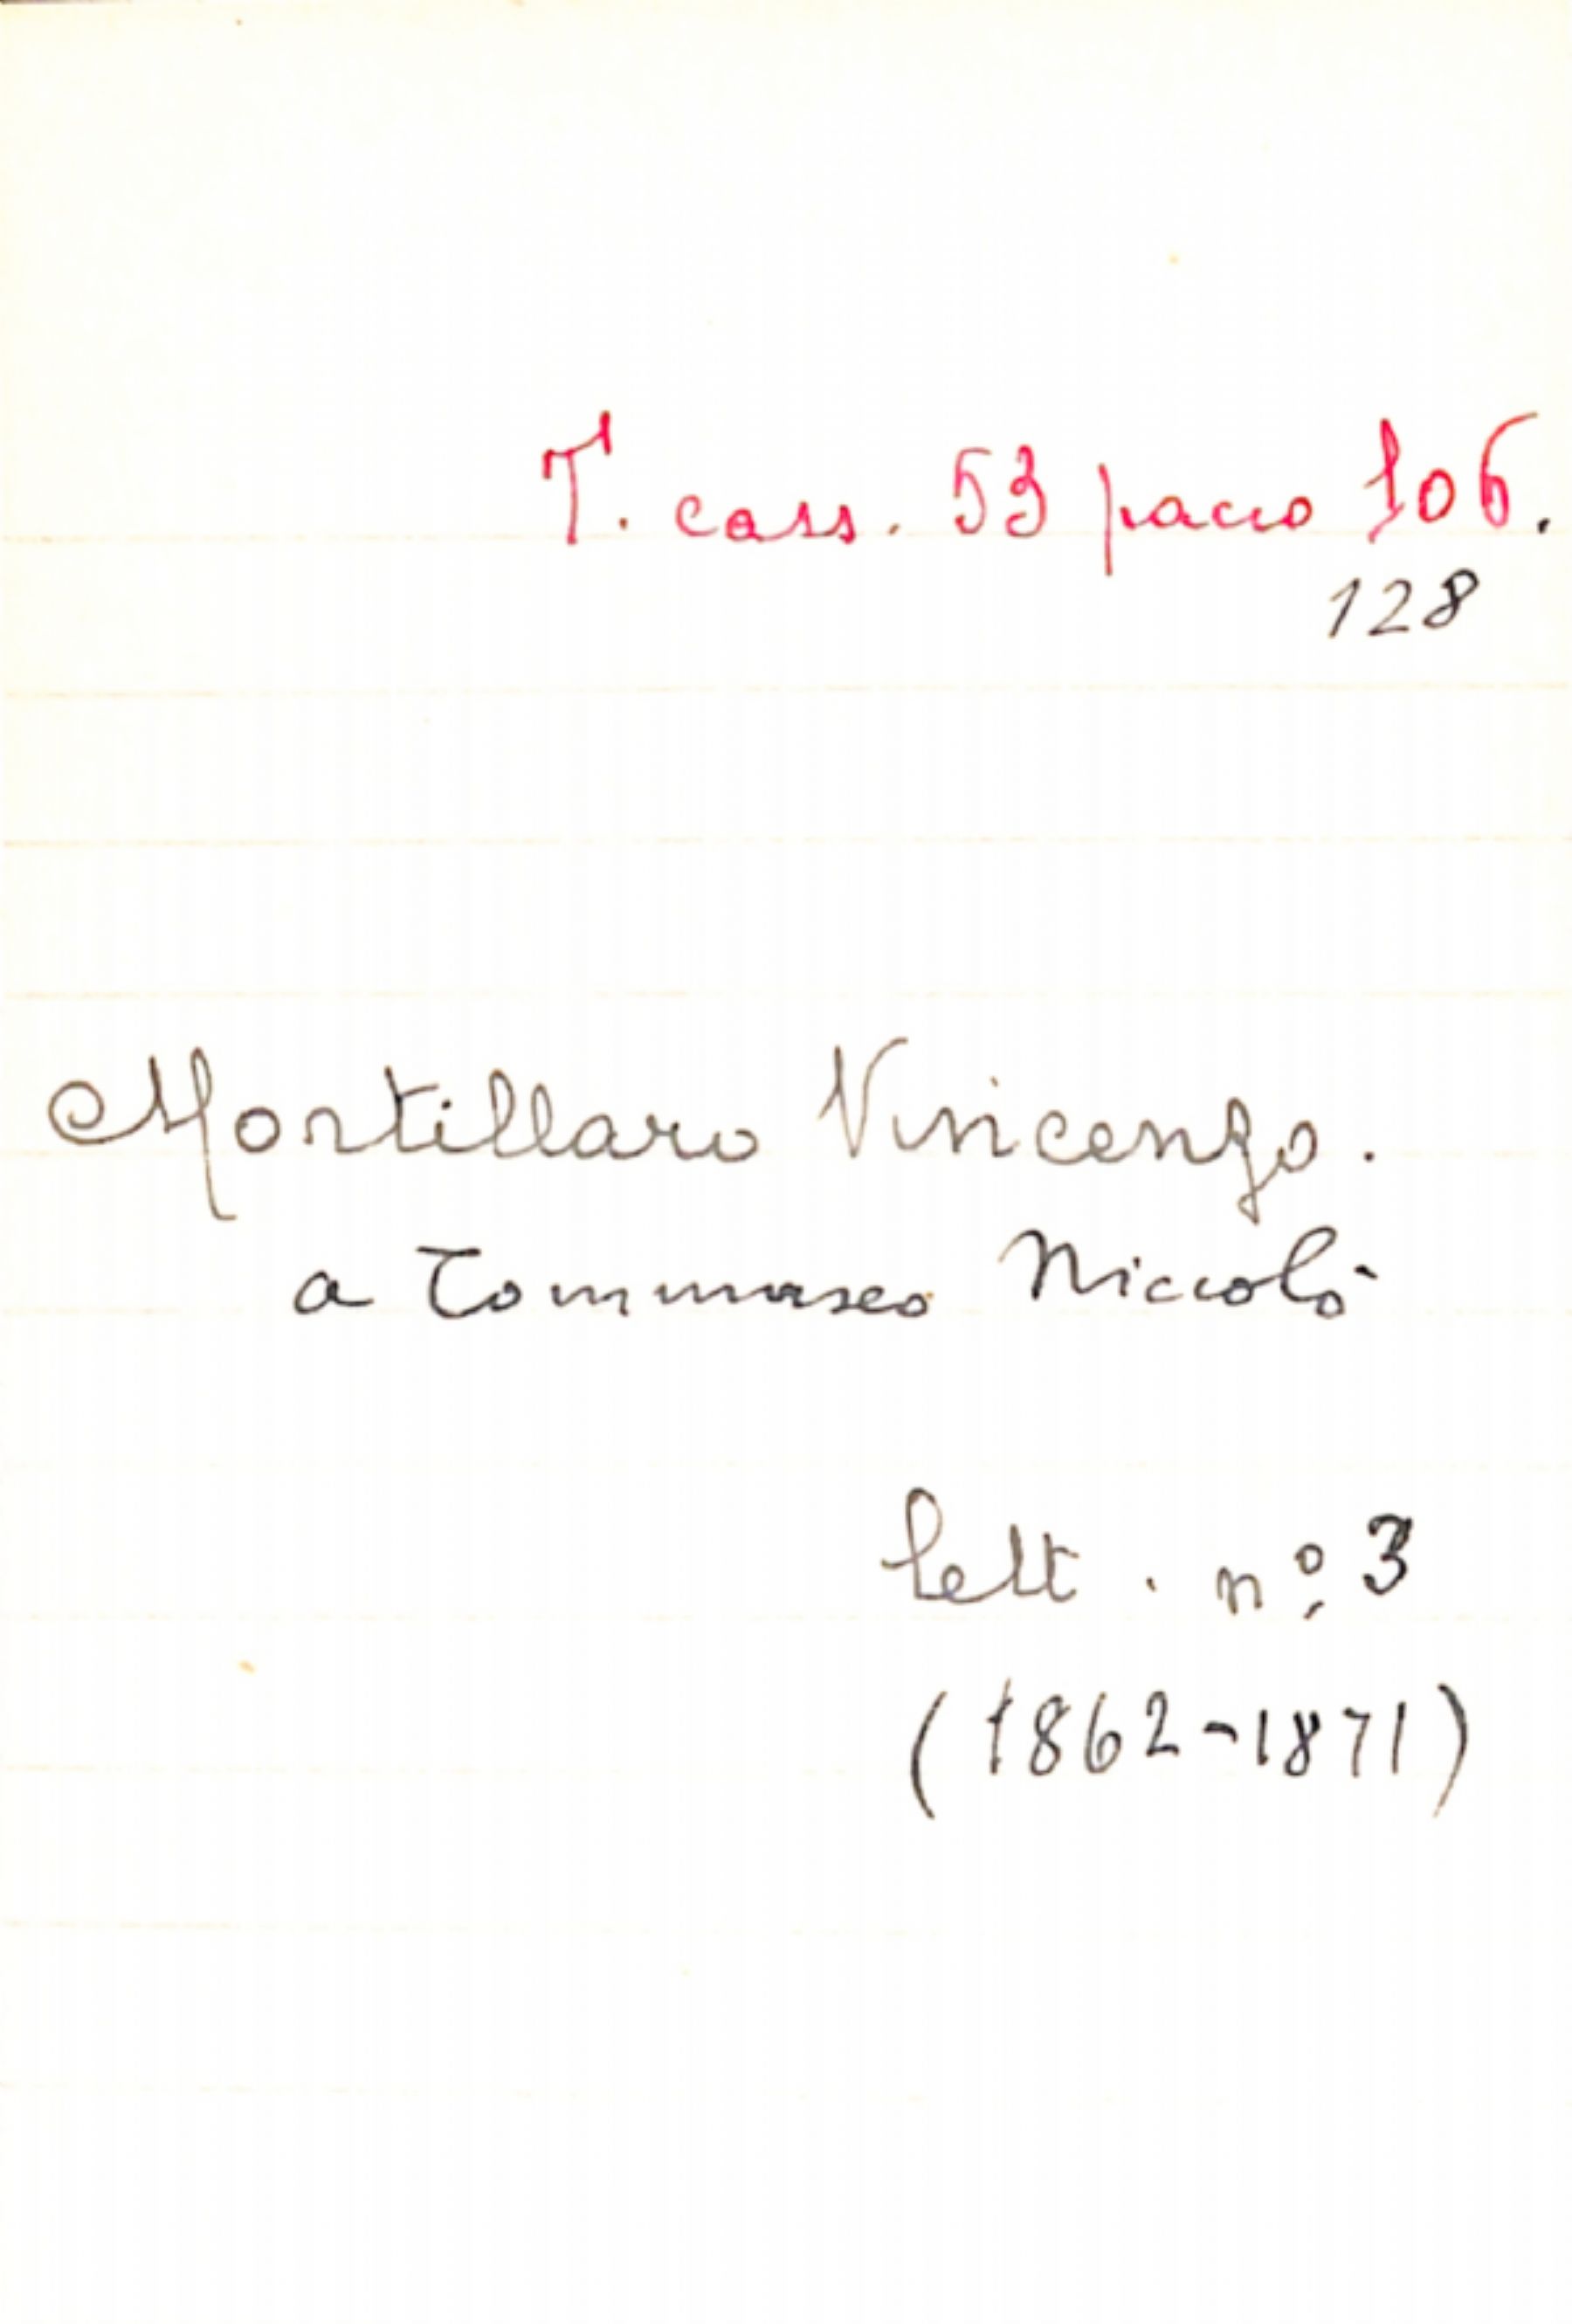 T. cass. 53 pacco 106.
128
Mortillaro Vincenzo.
a Tommaseo Niccolò
lett. nº 3
(1862-1871)